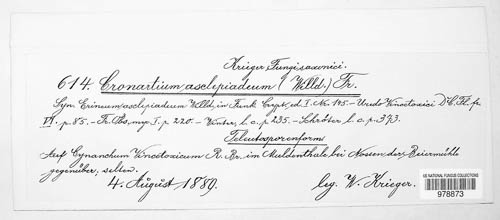 Krieger, Fungi saxonici.
614. Cronartium asclepiadeum (Willd.) Fr.
Syn. Erineum asclepiadeum Willd. in Funk Crypt. ed. I. No. 145. – Uredo Vincetoxici D'C. Fl. fr.
VI. p. 85. – Fr. Obs. myc. I. p. 220. – Winter, l. c. p. 235. – Schröter l. c. p. 373.
Teleutosporenform
Auf Cynanchum Vincetoxicum R. Br. im Muldenthale bei Nossen der Beiermühle
gegenüber, selten.
4. August 1889. leg. W. Krieger.
US NATIONAL FUNGUS COLLECTIONS
978873